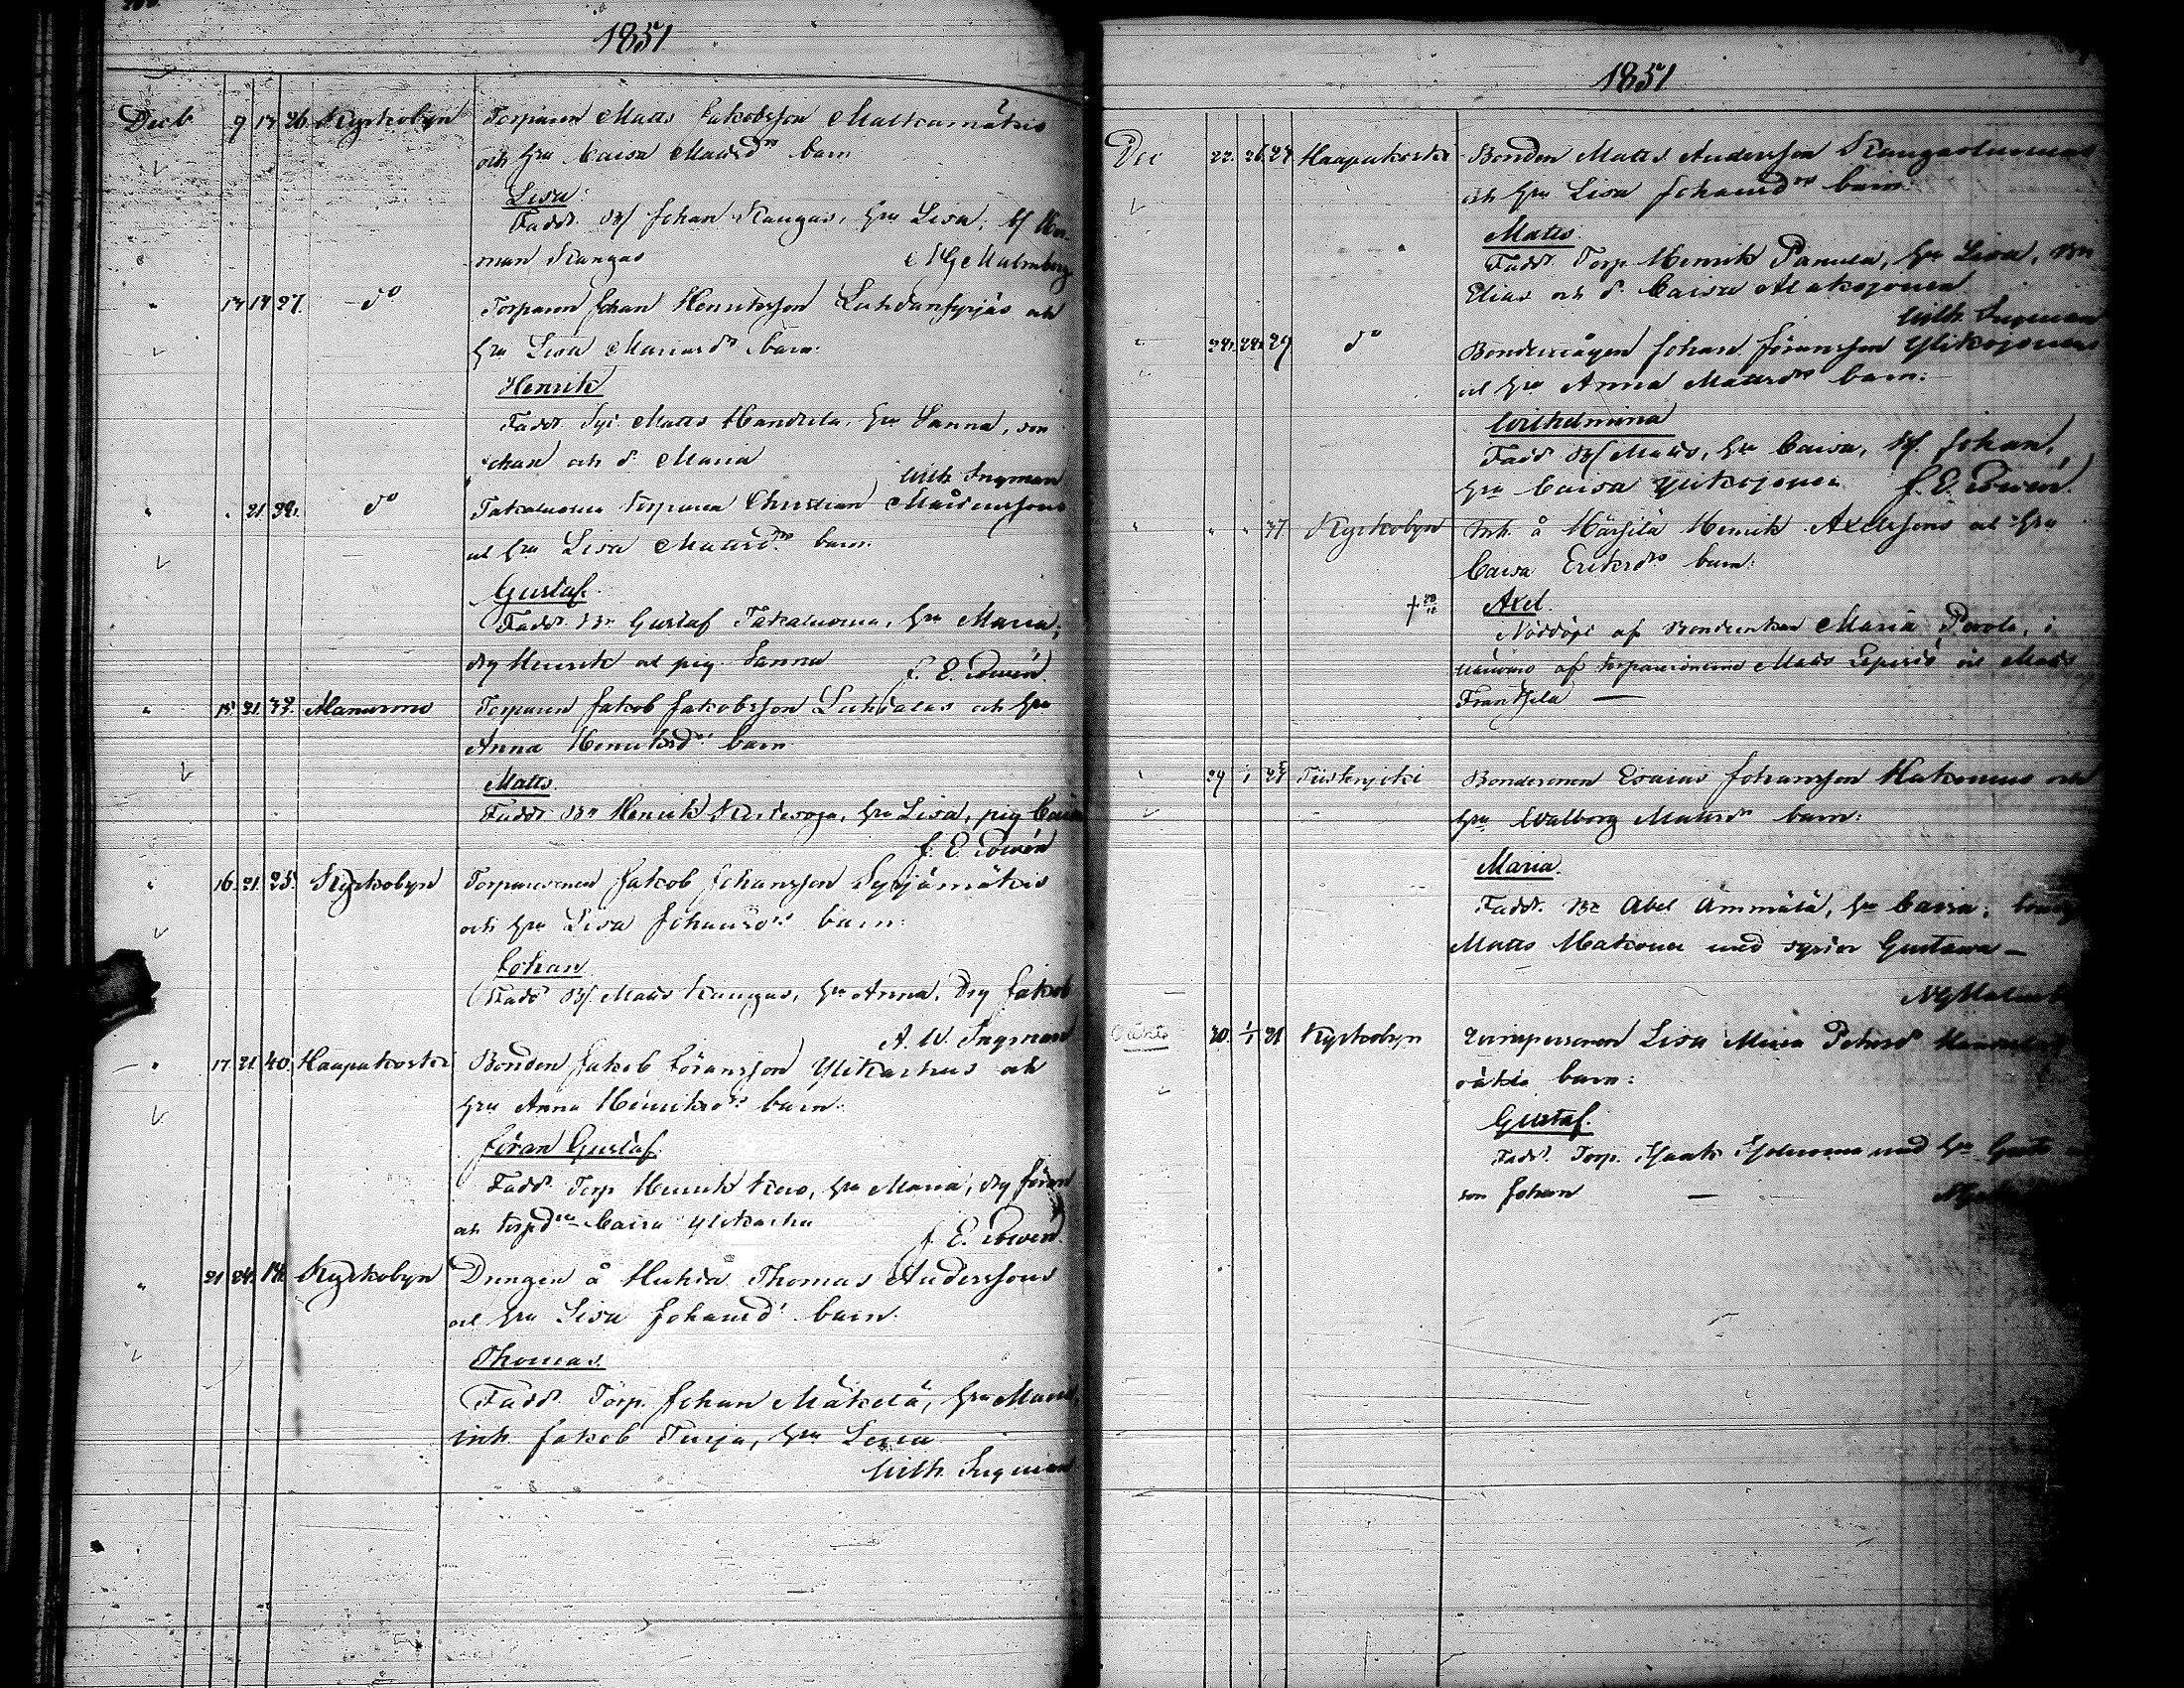 1851
Decb 9 13 26 Kyrkobyn Torparen Matts Jakobsson Maltcamäkis
och hru Caisa Mattsdrs barn
Lisa:
Fadd. Bf Johan Kangas, hru Lisa; bf Her-
man Kangas NGMalmberg
" 13 14 27. do Torparen Johan Henriksson Luhdansyrjäs och
hru Lisa Mariasdr barn:
Henrik
Fadd. Matts Handtela, hru Sanna, son
Johan och d. Maria Wilh. Ingman
" " 21 32. do Takaluoma Torparen Christian
ol hru Lisa Mattsdrs barn:
Gustaf.
Fadd. Bn Gustaf Takaluoma, hru Maria;
drg Henrik ol pig. Sanna J. E. Rowén
" 15 21 32. Alanurmo Torparen Jakob Jakobsson Luhdalas och hru
Anna Henriksdrs barn
Matts.
Fadd. Bn Henrik hru Lisa, pig Caisa
J. E. Rowén
" 16. 21. 25. Kyrkobyn Torparesonen Jakob Johansson Syrjämäkis
och hru Lisa Johansdrs barn:
Johan
Fadd. Bf. Matts Kangas, hru Anna, drg Jakob
A. W. Ingman
" 17 21. 40. Haapakoski Bonden Jakob Jöransson Ylikarhus och
hru Anna Henriksdrs barn:
Jöran Gustaf.
Fadd. Torp Henrik hru Maria, drg Jöran
och torpdrn Caisa Ylikarhu J. E. Rowén
" 21 24. Kyrkobyn Drengen å Huhta Thomas Anderssons
ol hru Lisa Johansd. barn.
Thomas.
Fadd. Torp. Johan Mäkelä, hru Maria,
inh. Jakob Turja, hru Lisa
Wilh. Ingman
1851
Dec 22. 26. 27 Haapakoski Bonden Matts Andersson Kangasluomas
och hru Lisa Johansdrs barn:
Matts.
Fadd. Torp. Henrik Panula, hru Lisa, Bn
Elias och d. Caisa Alakojonen
Wilh. Ingman
" 24. 28. 29 do Bondemågen Johan Jöransson Ylikojonens
ol hru Anna Mattsdrs barn:
Wilhelmina
Fadd Bf Matts, hru Caisa, bf. Johan,
hru Caisa Ylikojonen J. E. Rowén.
" " " 37 Kyrkobyn Inh. å Märsilä Henrik Axelssons ol hru
Caisa Eriksdrs barn:
Axel.
Nöddöpt af Bondenkan Maria Perola, i
närvaro af torparesönerna Matts ol Matts
Frantsila —
" 29 1 Tiistenjoki Bondesonen Esaias Johansson Hakonens och
hru Walborg Mattsdrs barn:
Maria.
Fadd. Bn Abel Ämmälä, hru Caisa;
Matts Hakonen med syster Gustawa —
30. 1/1 21 Kyrkobyn Qvinspersonen Lisa Maria Petersd
oäkta barn:
Gustaf.
Fadd. Torp. Isaak med hru
son Johan —